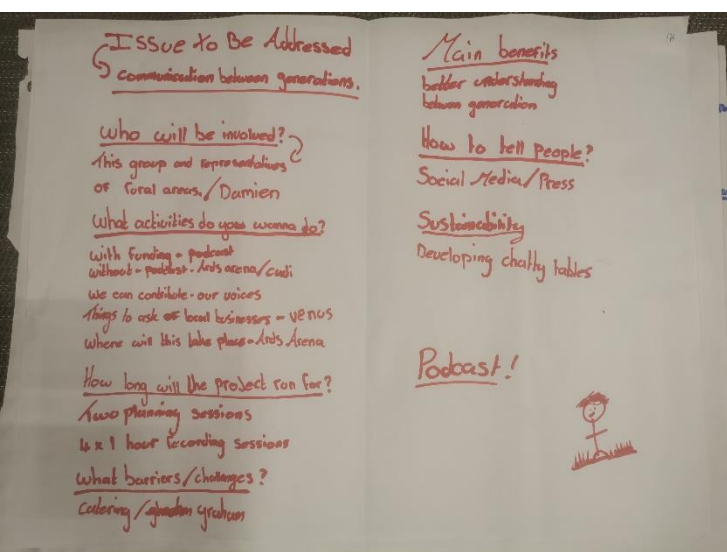 Issue to Be Addressed
communication between generations.
Who will be involved?
This group and representatives
of rural areas./Damien
What activities do you wanna do?
With Funding - podcast
without - podcast - Arts arena/
We can contribute - our voices
Things to ask of local businesses - venus
where will this take place - Arts Arena
How long will the project run for?
Two planning sessions
4 x 1 hour recording sessions
What barriers/challenges?
Catering / graham
Main benefits
better understanding
between generation
How to tell people?
Social Media/Press
Sustainability
Developing chatty tables
Podcast!